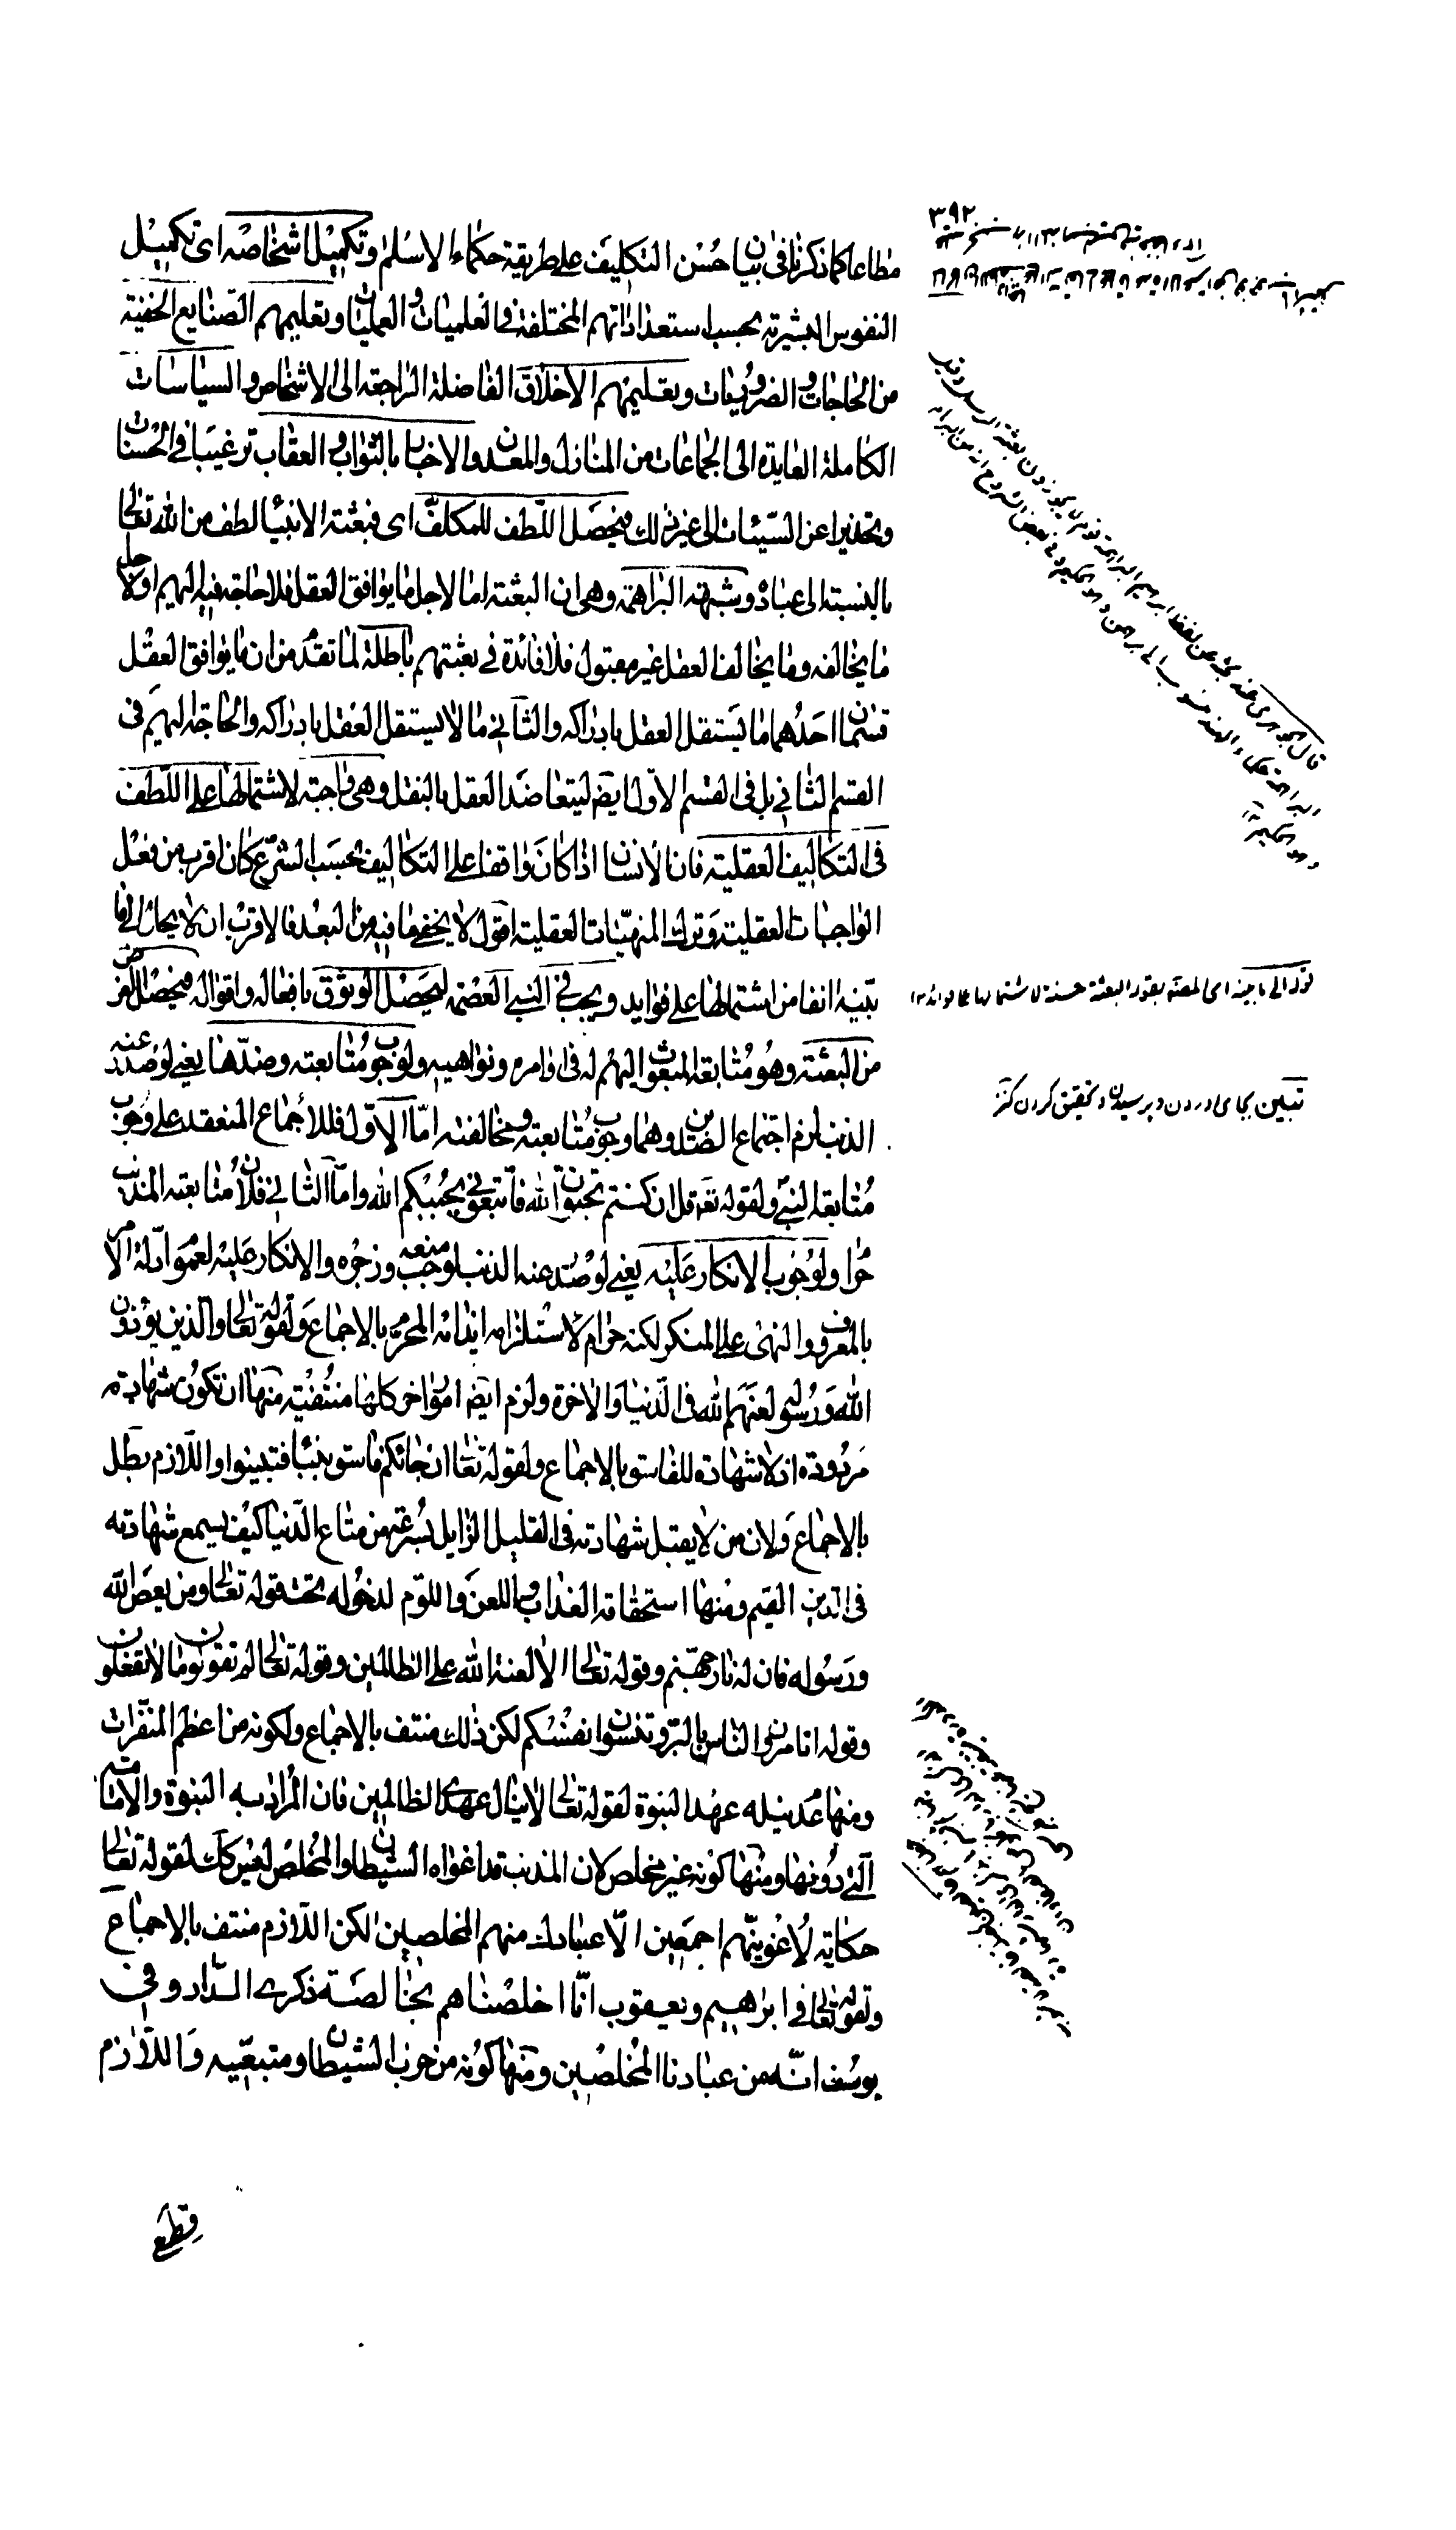 ٣٩٢
مطاعا كما ذكرنا فى بيان حسن التكليف على طريقة حكماء الاسلام وتكميل اشخاصه اى تكميل
النفوس البشرية بحسب استعداداتهم المختلفة فى العلميات والعمليات وتعليمهم الصنايع الخفية
من الحاجات والضروريات وتعليمهم الاخلاق الفاضلة الراجعة الى الاشخاص والسياسات
الكاملة العايدة الى الجماعات من المنازل والمدن والاخبار بالثواب والعقاب ترغيبا فى الحسنات
وتحذيرا عن السيئات الى غير ذلك فيحصل اللطف للمكلف اى فبعثة الانبيا لطف من الله تعالى
بالنسبة الى عباده وشبهة البراهمة وهى ان البعثة اما لاجل ما يوافق العقل فلا حاجة فيه اليهم او لاجل
ما يخالفه وما يخالف العقل غير مقبول فلا فائدة فى بعثتهم باطلة لما تقدم من ان ما يوافق العقل
قسمان احدهما ما يستقل العقل بادراكه والثانى ما لا يستقل العقل بادراكه والحاجة اليهم فى
القسم الثانى بل فى القسم الاول ايضا ليتعاضد العقل بالنقل وهى واجبة لاشتمالها على اللطف
فى التكاليف العقلية فان الانسان اذا كان واقفا على التكاليف بحسب الشرع كان اقرب من فعل
الواجبات العقلية وترك المنهيات العقلية اقول لا يخفى ما فيه من البعد فالاقرب ان لا يحال الى ما
بينه انفا من اشتمالها على فوايد ويجب فى النبى العصمة ليحصل الوثوق بافعاله واقواله فيحصل الغرض
من البعثة وهو متابعة المبعوث اليهم له فى اوامره ونواهيه ولوجوب متابعته وضدها يعنى لو صدر عنه
الذنب لزم اجتماع الضدين وهما وجوب متابعته ومخالفته اما الاول فللاجماع المنعقد على وجوب
متابعة النبى ولقوله تعالى قل ان كنتم تحبون الله فاتبعونى يحببكم الله واما الثانى فلان متابعة المذنب
حرام ولوجوب الانكار عليه يعنى لو صدر عنه الذنب لوجب منعه وزجره والانكار عليه لعموم ادلة الامر
بالمعروف والنهى على المنكر لكنه حرام لاستلزامه ايذائه المحرم بالاجماع ولقوله تعالى والذين يؤذون
الله ورسوله لعنهم الله فى الدنيا والاخرة ولزم ايضا امور اخر كلها منتفية منها ان تكون شهادته
مردودة اذ لا شهادة للفاسق بالاجماع ولقوله تعالى ان جائكم فاسق بنبأ فتبينوا واللازم بطل
بالاجماع ولان من لا يقبل شهادته فى القليل الزايل بسرعة من متاع الدنيا كيف يسمع شهادته
فى الدين القيم ومنها استحقاقه العذاب واللعن واللوم لدخوله تحت قوله تعالى ومن يعص الله
ورسوله فان له نار جهنم وقوله تعالى الا لعنة الله على الظالمين وقوله تعالى لم تقولون ما لا تفعلون
وقوله اتامرون الناس بالبر وتنسون انفسكم لكن ذلك منتف بالاجماع ولكونه من اعظم المنفرات
ومنها عدم نيله عهد النبوة لقوله تعالى لا ينال عهدى الظالمين فان المراد به النبوة والامامة
التى دونها ومنها كونه غير مخلص لان المذنب قد اغواه الشيطان والمخلص ليس كك لقوله تعالى
حكاية لاغوينهم اجمعين الا عبادك منهم المخلصين لكن اللازم منتف بالاجماع
وقوله تعالى فى ابرهيم ويعقوب انا اخلصناهم بخالصة ذكرى الدار وفى
يوسف انه من عبادنا المخلصين ومنها كونه من حزب الشيطان ومتبعيه واللازم
قطعى
قوله الى ما بينه اى المصنف بقوله البعثة حسنة لاشتمالها على فوائد ١٢
تبين بجاى اوردن وپرسيدن وتحقيق كردن كنز